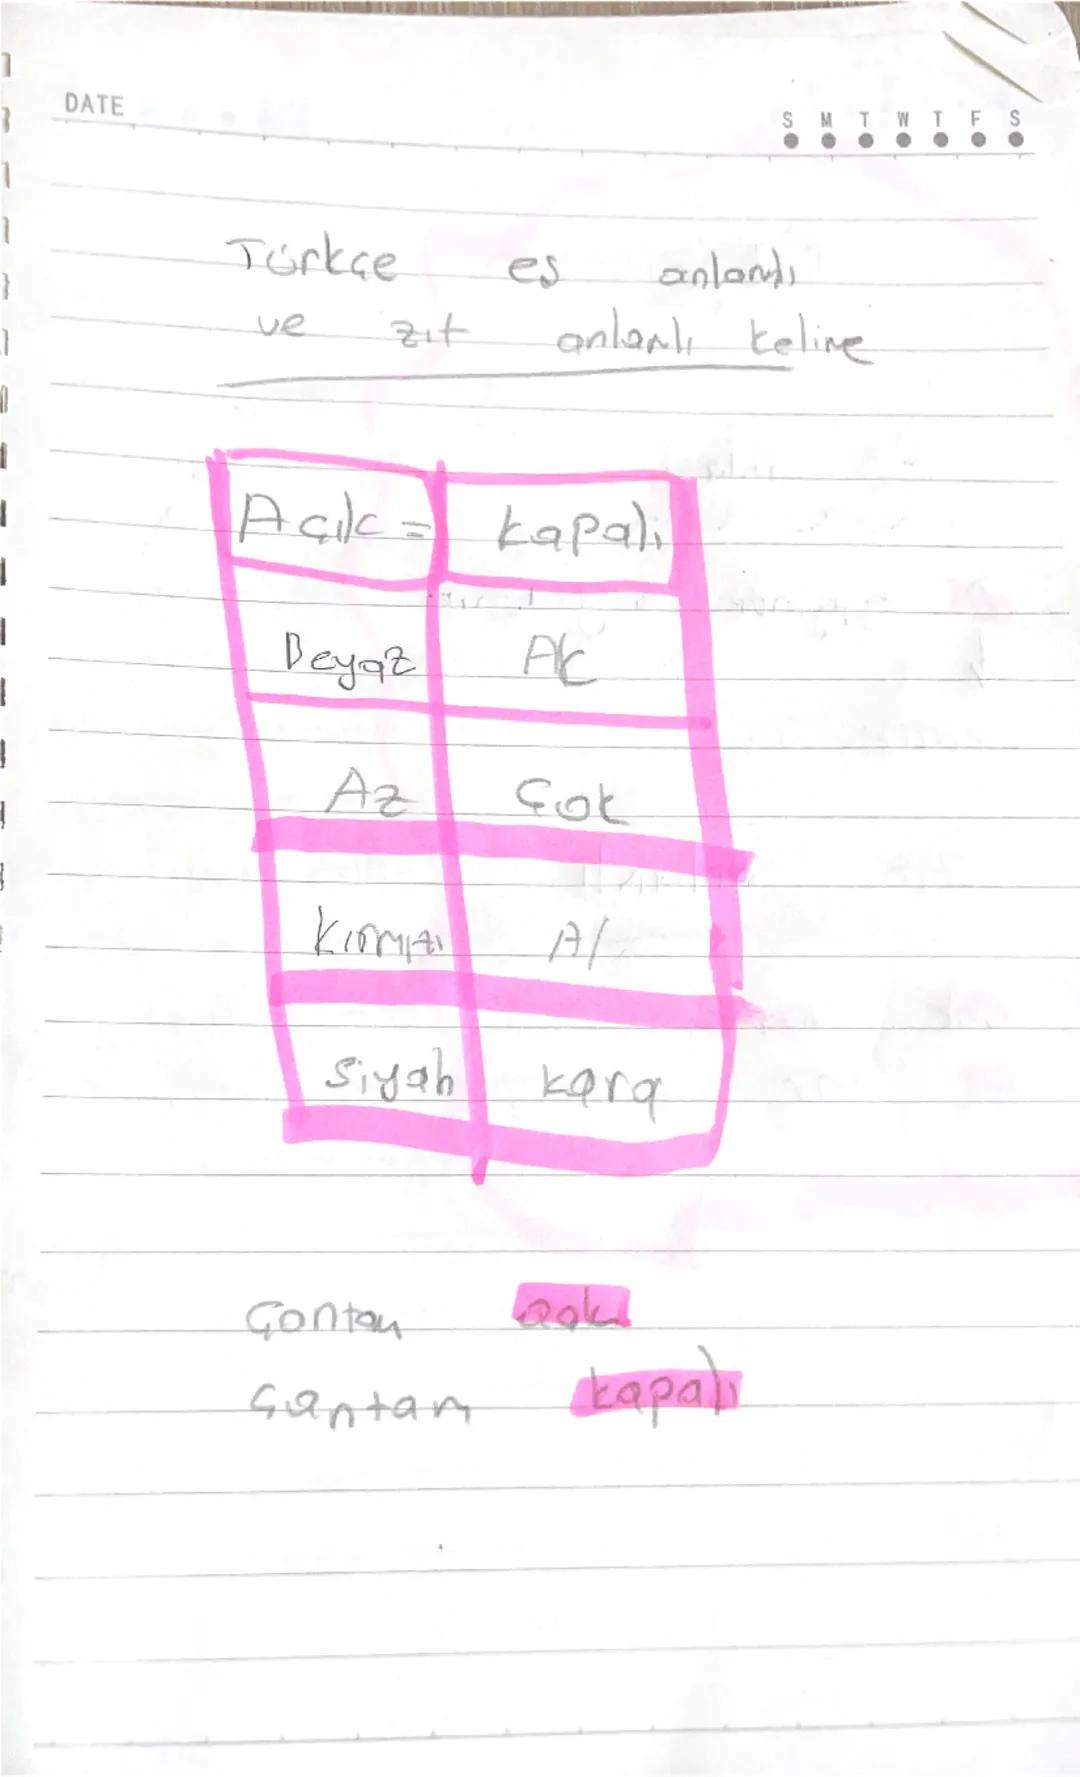 DATE
S M T W T F S
Türkçe eş anlamlı
ve zıt anlamlı kelime
Açık = kapalı
Beyaz Ak
Az Çok
Kırmızı Al
Siyah kara
Çantam
Çantam kapalı